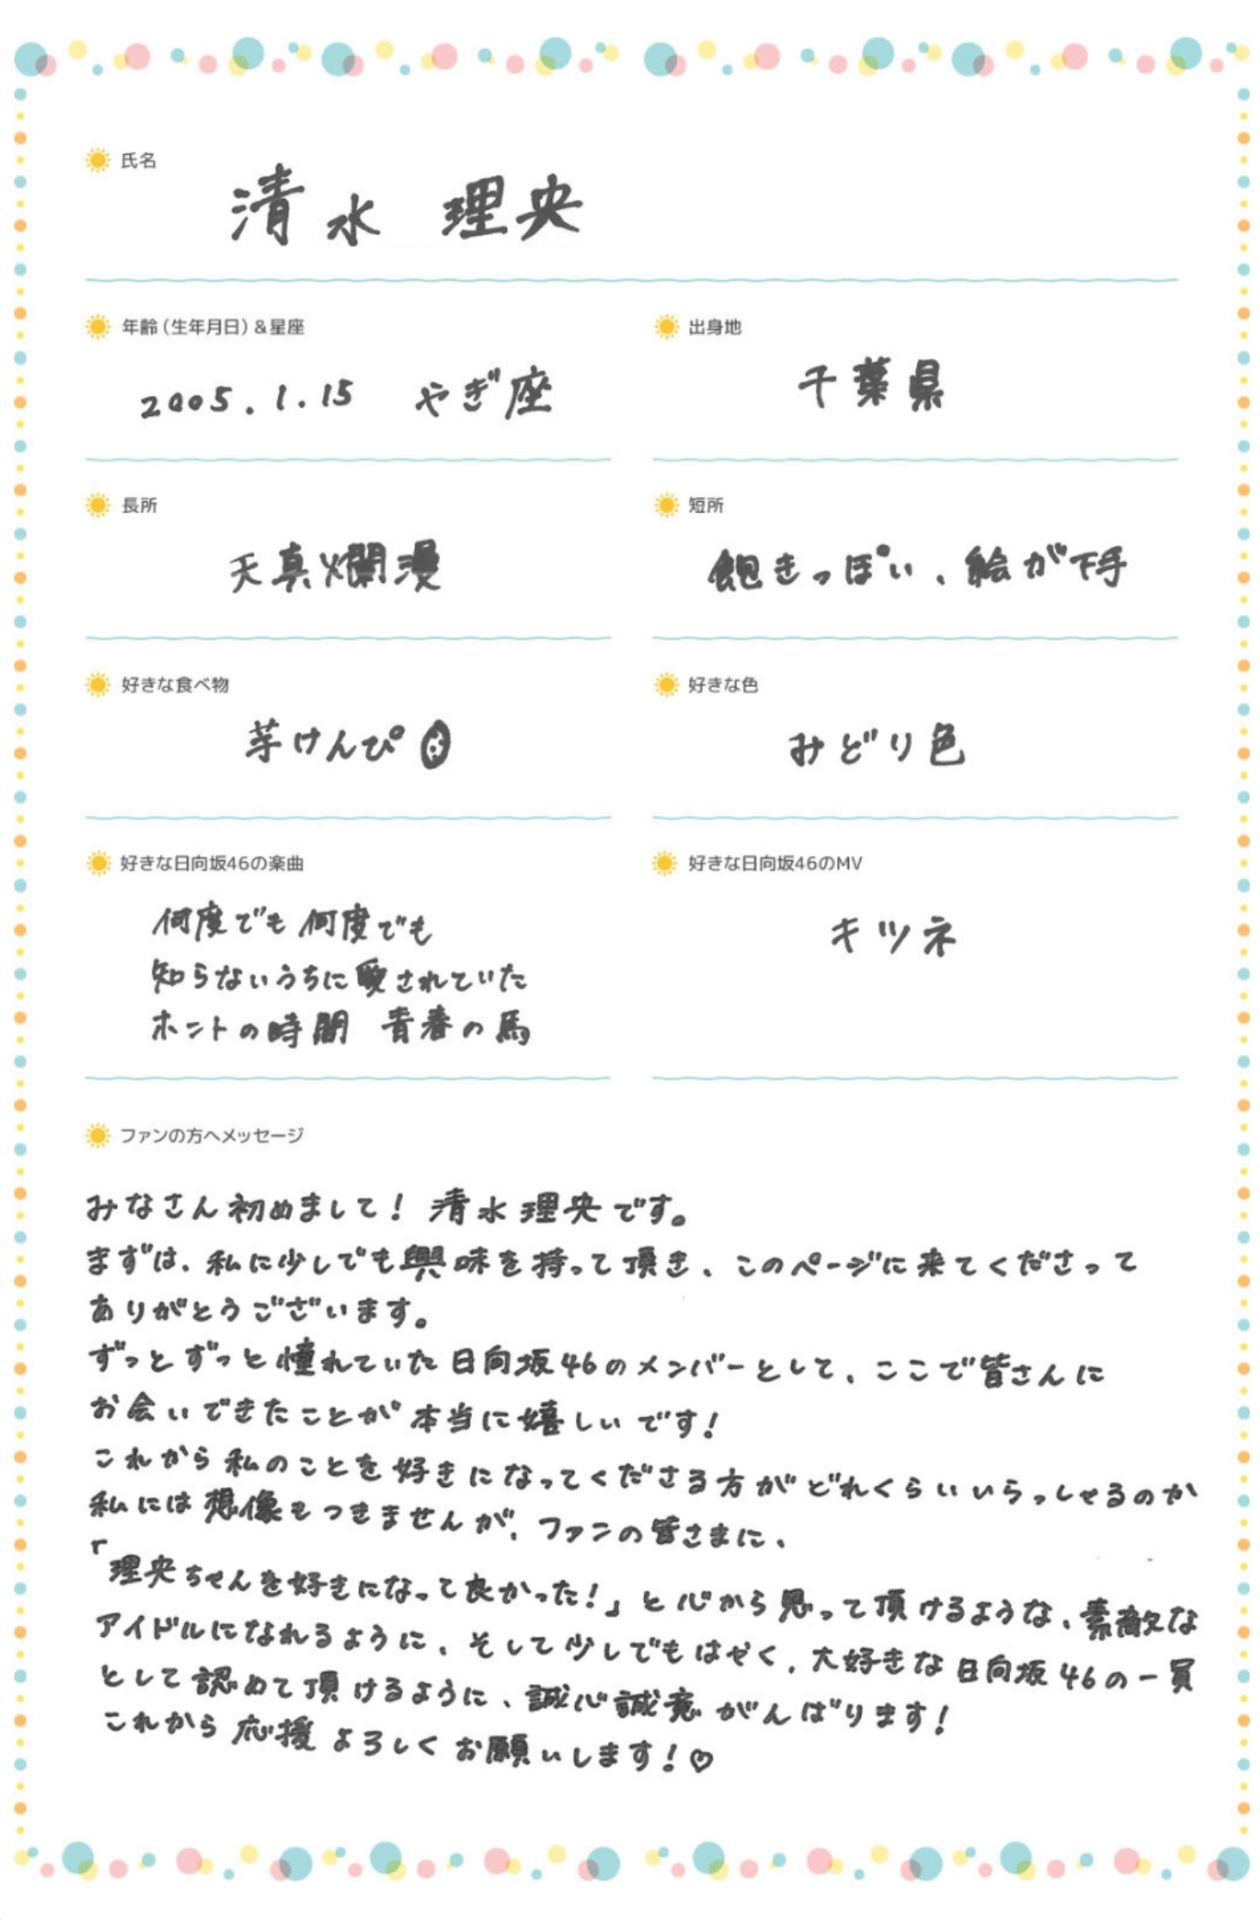 氏名
清水 理央
年齢(生年月日)&星座
2005.1.15 やぎ座
出身地
千葉県
長所
天真爛漫
短所
飽きっぽい、絵が下手
好きな食べ物
芋けんぴ
好きな色
みどり色
好きな日向坂46の楽曲
何度でも何度でも
知らないうちに愛されていた
ホントの時間 青春の馬
好きな日向坂46のMV
キツネ
ファンの方へメッセージ
みなさん初めまして! 清水理央です。
まずは、私に少しでも興味を持って頂き、このページに来てくださって
ありがとうございます。
ずっとずっと憧れていた日向坂46のメンバーとして、ここで皆さんに
お会いできたことが本当に嬉しいです!
これから私のことを好きになってくださる方がどれくらいいらっしゃるのか
私には想像もつきませんが、ファンの皆さまに、
「理央ちゃんを好きになって良かった!」と心から思って頂けるような、素敵な
アイドルになれるように、そして少しでもはやく、大好きな日向坂46の一員
として認めて頂けるように、誠心誠意がんばります!
これから応援よろしくお願いします!♡